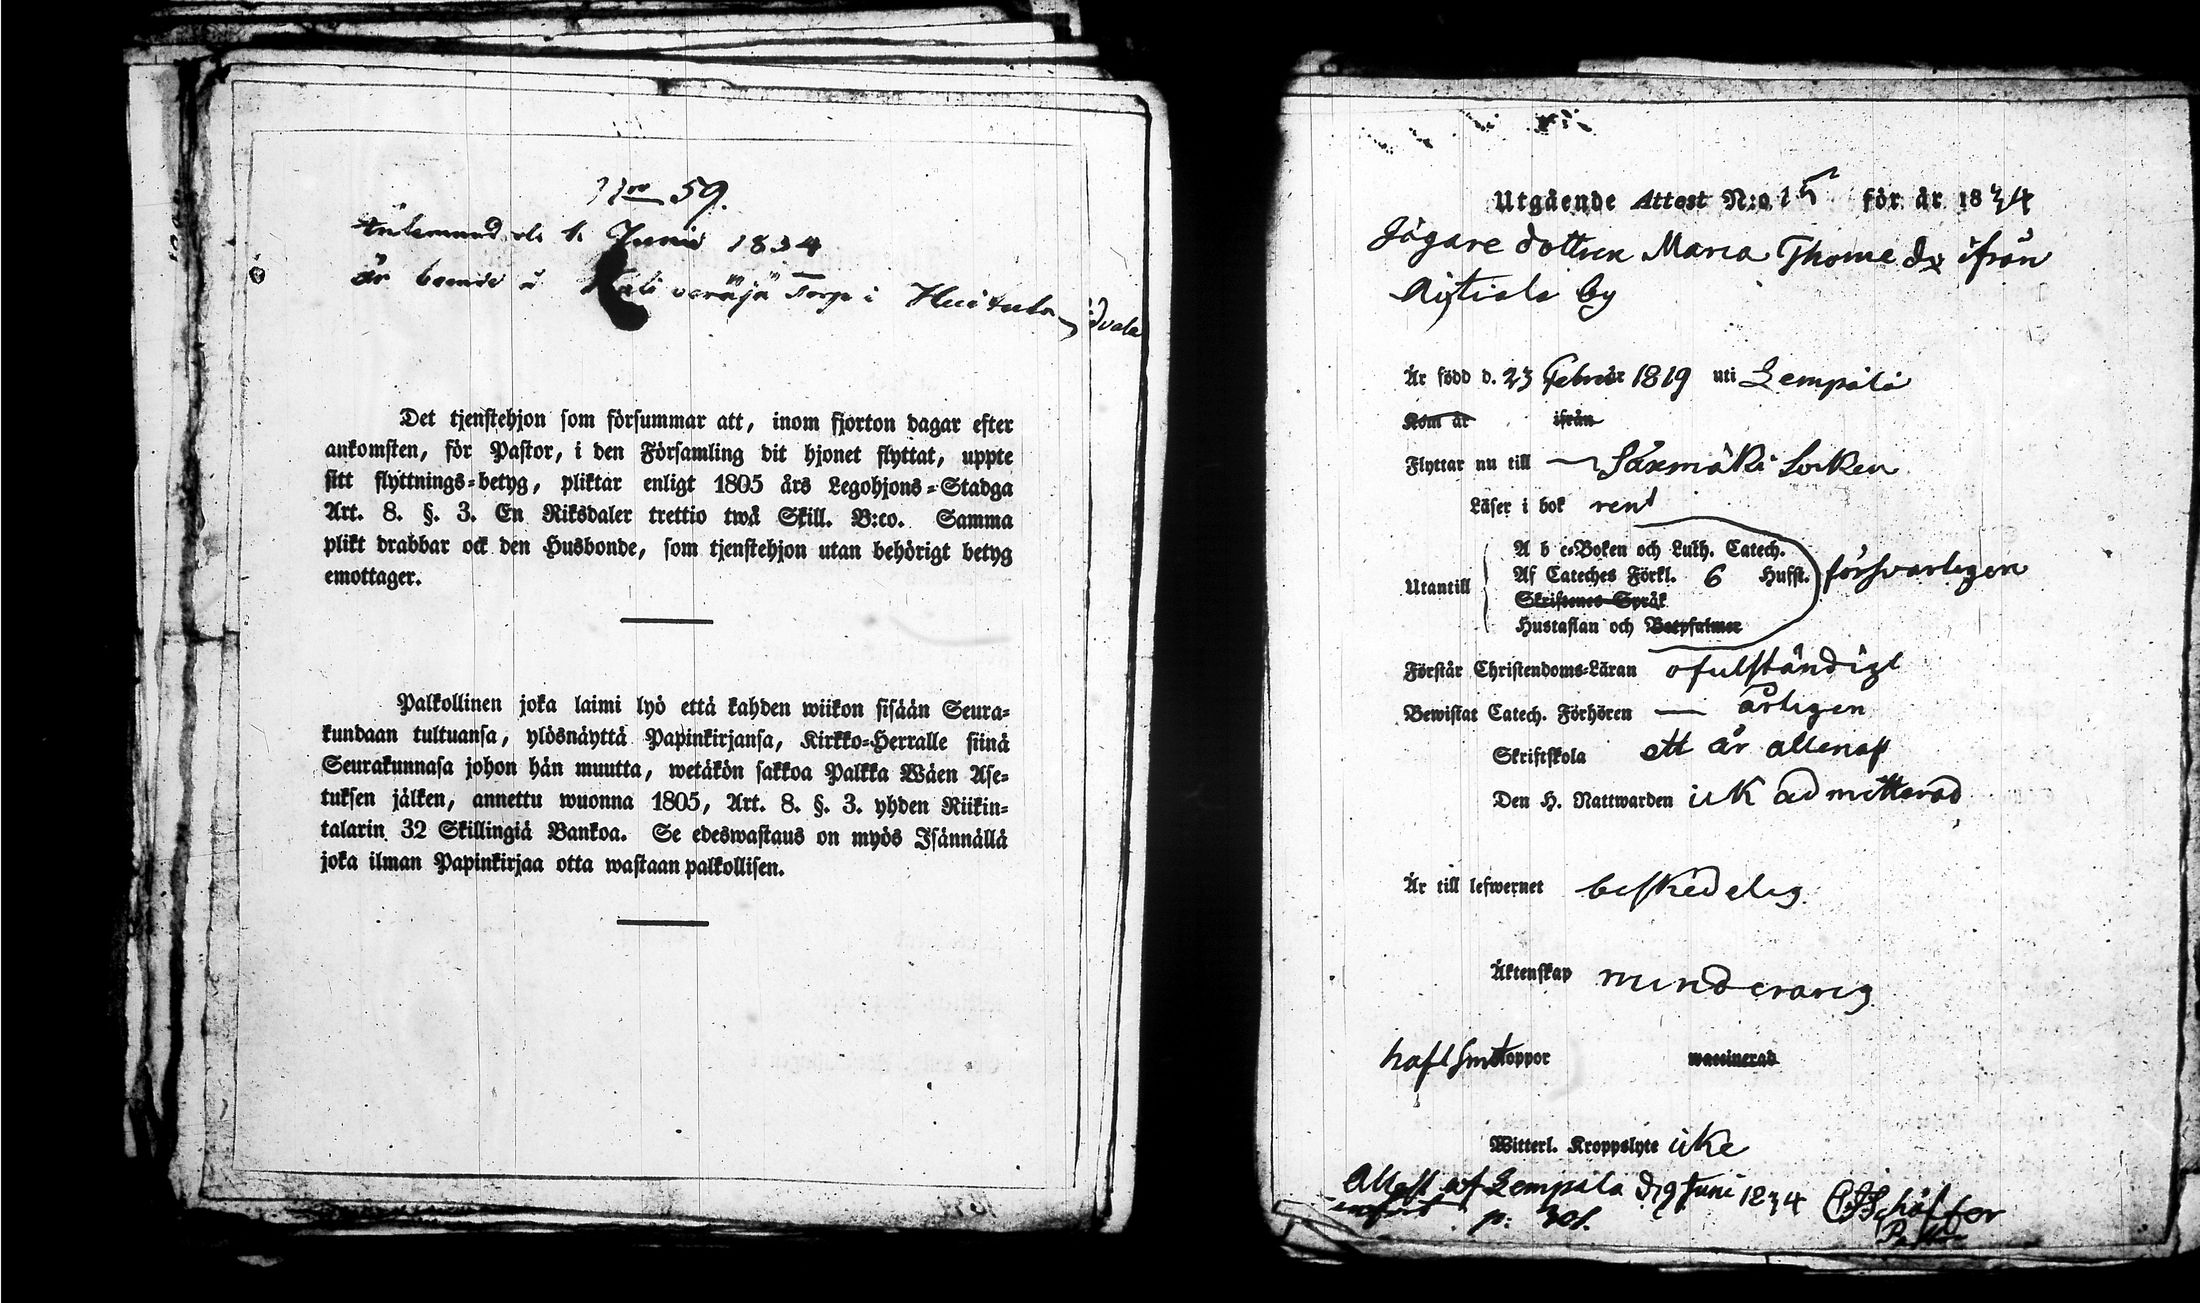 Nro 59.
1 Junii 1834
är boende i veräjä Torp i Huittula
Det tjenstehjon som försummar att, inom fjorton dagar efter
ankomsten, för Pastor, i den Församling dit hjonet flyttat, uppte
sitt flyttnings-betyg, pliktar enligt 1805 års Legohjons-Stadga
Art. 8. §. 3. En Riksdaler trettio twå Skill. B:co. Samma
plikt drabbar ock den Husbonde, som tjenstehjon utan behörigt betyg
emottager.
Palkollinen joka laimi lyö että kahden wiikon sisään Seura-
kundaan tultuansa, ylösnäyttä Papinkirjansa, Kirkko-Herralle siinä
Seurakunnasa johon hän muutta, wetäkön sakkoa Palkka Wäen Ase-
tuksen jälken, annettu wuonna 1805, Art. 8. §. 3. yhden Riikin-
talarin 32 Skillingiä Bankoa. Se edeswastaus on myös Isännällä
joka ilman Papinkirjaa otta wastaan palkollisen.
Utgående Attest N:o 15 för år 1834
Jägare dottren Maria Thome dr ifrån
by
Är född d. 23 Februar 1819 uti Lempälä
Kom år ifrån
Flyttar nu till Säxmäki Socken
Läser i bok rent
A b c-Boken och Luth. Catech.
Utantill Af Cateches Förkl. 6 Hufst. försvarligen
Skriftenes Språk
Hustaflan och Botpsalmer
Förstår Christendoms-Läran ofulständigt
Bewistat Catech. Förhören — årligen
Skriftskola ett år allenast
Den H. Nattwarden ick admitterad
Är till lefwernet beskedelig
Äktenskap minderarig
haft Smittkoppor waccinerad
Witterl. Kroppslyte icke
Attest af Lempälä d. 9 Juni 1834 Schäffer
infört p. 301. Pastor